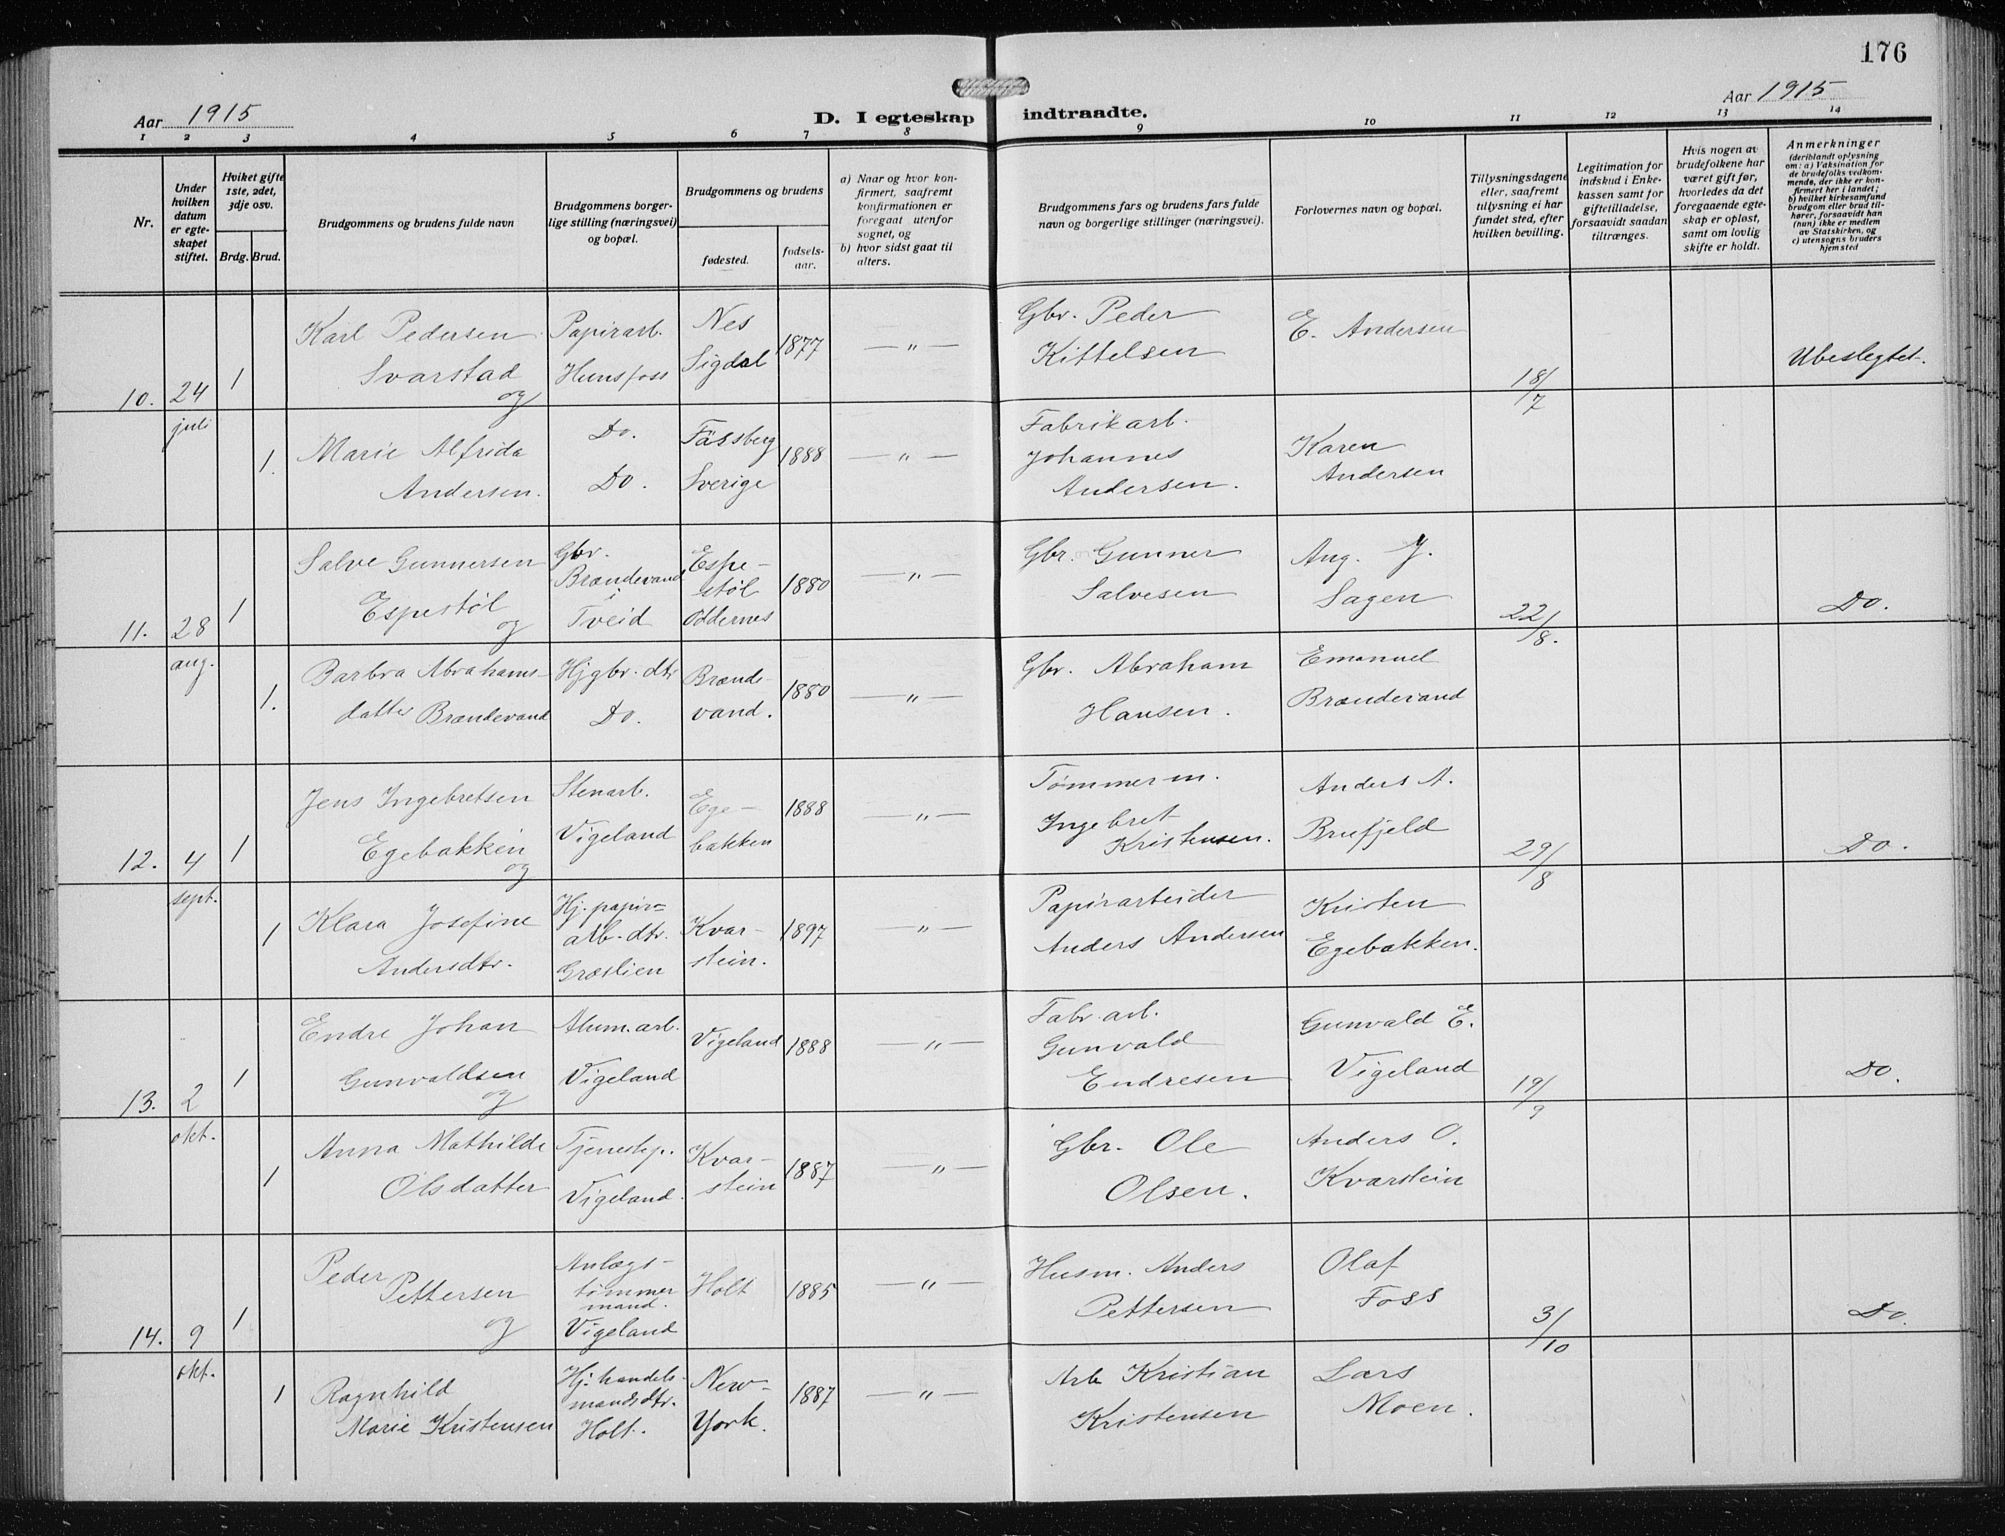 176
Aar 1915
D. I egteskap indtraadte.
Aar 1915
1 2 3 4 5 6 7 8 9 10 11 12 13 14
Nr.
Under hvilken datum er egteskapet stiftet.
Hvilket gifte 1ste, 2det, 3dje osv.
Brdg. Brud.
Brudgommens og brudens fulde navn
Brudgommens borgerlige stilling (næringsvei) og bopæl.
Brudgommens og brudens
fødested.
fødselsaar.
a) Naar og hvor konfirmert, saafremt konfirmationen er foregaat utenfor sognet, og
b) hvor sidst gaat til alters.
Brudgommens fars og brudens fars fulde navn og borgerlige stillinger (næringsvei).
Forlovernes navn og bopæl.
Tillysningsdagene eller, saafremt tillysning ei har fundet sted, efter hvilken bevilling.
Legitimation for indskud i Enkekassen samt for giftetilladelse, forsaavidt saadan tiltrænges.
Hvis nogen av brudefolkene har været gift før, hvorledes da det foregaaende egteskap er opløst, samt om lovlig skifte er holdt.
Anmerkninger
(deriblandt oplysning om: a) Vaksination for de brudefolks vedkommende, der ikke er konfirmert her i landet; b) hvilket kirkesamfund brudgom eller brud tilhører, forsaavidt han (hun) ikke er medlem av Statskirken, og c) utensogns bruders hjemsted
10. 24 juli 1
Karl Pedersen
Svarstad
og
Papirarb.
Hunsfoss
Nes
Sigdal
1877
— " —
Gbr. Peder
Kittelsen
E. Andersen
18/7
Ubeslegtet.
1.
Marie Alfrida
Andersen.
Do.
Do.
Fässberg
Sverige
1888
— " —
Fabrikarb.
Johannes
Andersen.
Karen
Andersen
11. 28 aug. 1
Salve Gunnersen
Espestøl
og
Gbr.
Brændevand
Tveid
Espe-
støl
Oddernes
1880
— " —
Gbr. Gunner
Salvesen
Aug. J.
Sagen
22/8.
Do.
1.
Barbra Abrahams-
datter Brændevand
Hjgbr. dtr
Do.
Brænde-
vand.
1880
— " —
Gbr. Abraham
Hansen.
Emanuel
Brændevand
12. 4 sept. 1
Jens Ingebretsen
Egebakken
og
Stenarb.
Vigeland
Ege-
bakken
1888
— " —
Tømmerm.
Ingebret
Kristensen.
Anders A.
Brufjeld
29/8
Do.
1
Klara Josefine
Andersdtr.
Hj. papir=
arb. dtr.
Græslien
Kvar-
stein.
1897
— " —
Papirarbeider
Anders Andersen
Kristen
Egebakken.
13. 2 okt. 1
Endre Johan
Gunvaldsen
og
Alum.arb.
Vigeland
Vigeland
1888
— " —
Fabr.arb.
Gunvald
Endresen
Gunvald E.
Vigeland
19/9
Do.
1
Anna Mathilde
Olsdatter
Tjenestep.
Vigeland.
Kvar-
stein
1887
— " —
Gbr. Ole
Olsen.
Anders O.
Kvarstein
14. 9 okt. 1
Peder
Pettersen
og
Anlægs-
tømmer
mand.
Vigeland
Holt
1885
— " —
Husm. Anders
Pettersen
Olaf
Foss
3/10
Do.
1
Ragnhild
Marie Kristensen
Hj. handels-
mandsdtr.
Holt.
New-
York.
1887
— " —
Arb Kristian
Kristensen
Lars
Moen.